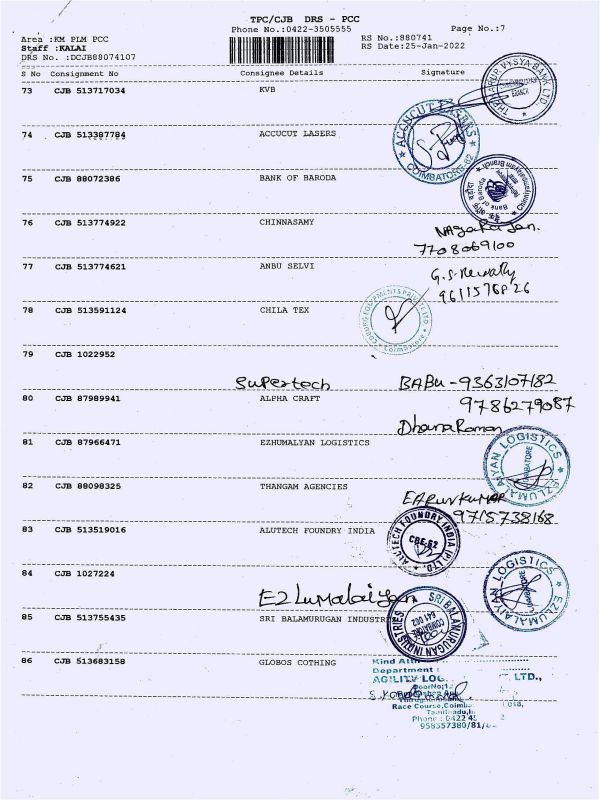 TPC/CJB DRS - PCC
Phone No.:0422-3505555 Page No.:7
Area :KM PLM PCC RS No.:880741
Staff :KALAI RS Date:25-Jan-2022
DRS No. :DCJB88074107
S No Consignment No Consignee Details Signature
73 CJB 513717034 KVB
THE KARUR VYSYA BANK LTD
BRANCH
74 CJB 513387784 ACCUCUT LASERS
ACCUCUT LASERS
COIMBATORE-62
75 CJB 88072386 BANK OF BARODA
Bank of Baroda
76 CJB 513774922 CHINNASAMY
7708069100
77 CJB 513774621 ANBU SELVI
78 CJB 513591124 CHILA TEX
79 CJB 1022952
Supertech BABU - 9363107182
80 CJB 87989941 ALPHA CRAFT 9786279087
DhanaRaman
81 CJB 87966471 EZHUMALYAN LOGISTICS
EZLUMALAIYAN LOGISTICS
82 CJB 88098325 THANGAM AGENCIES
9715738168
83 CJB 513519016 ALUTECH FOUNDRY INDIA
ALUTECH FOUNDRY INDIA (P) LTD.
CBE-62
84 CJB 1027224
EZLUMALAIYAN LOGISTICS
Ezlumalaiyan
85 CJB 513755435 SRI BALAMURUGAN INDUSTR
SRI BALAMURUGAN INDUSTRIES
COIMBATORE
641 062
86 CJB 513683158 GLOBOS COTHING
Kind Attn
Department :
AGILITY LOG. LTD.,
Race Course,Coimb 018,
Phone : 0422 45